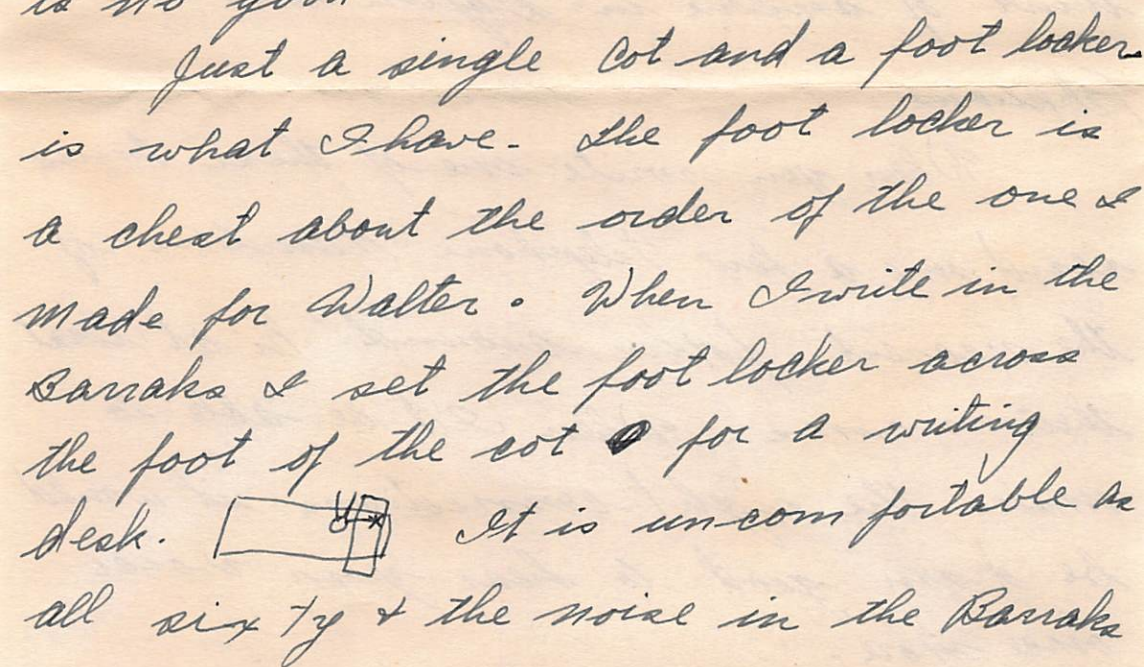 is no good
Just a single cot and a foot locker
is what I have. The foot locker is
a chest about the order of the one I
made for Walter. When I write in the
Barraks I set the foot locker across
the foot of the cot for a writing
desk. It is uncomfortable as
all sixty & the noise in the Barraks